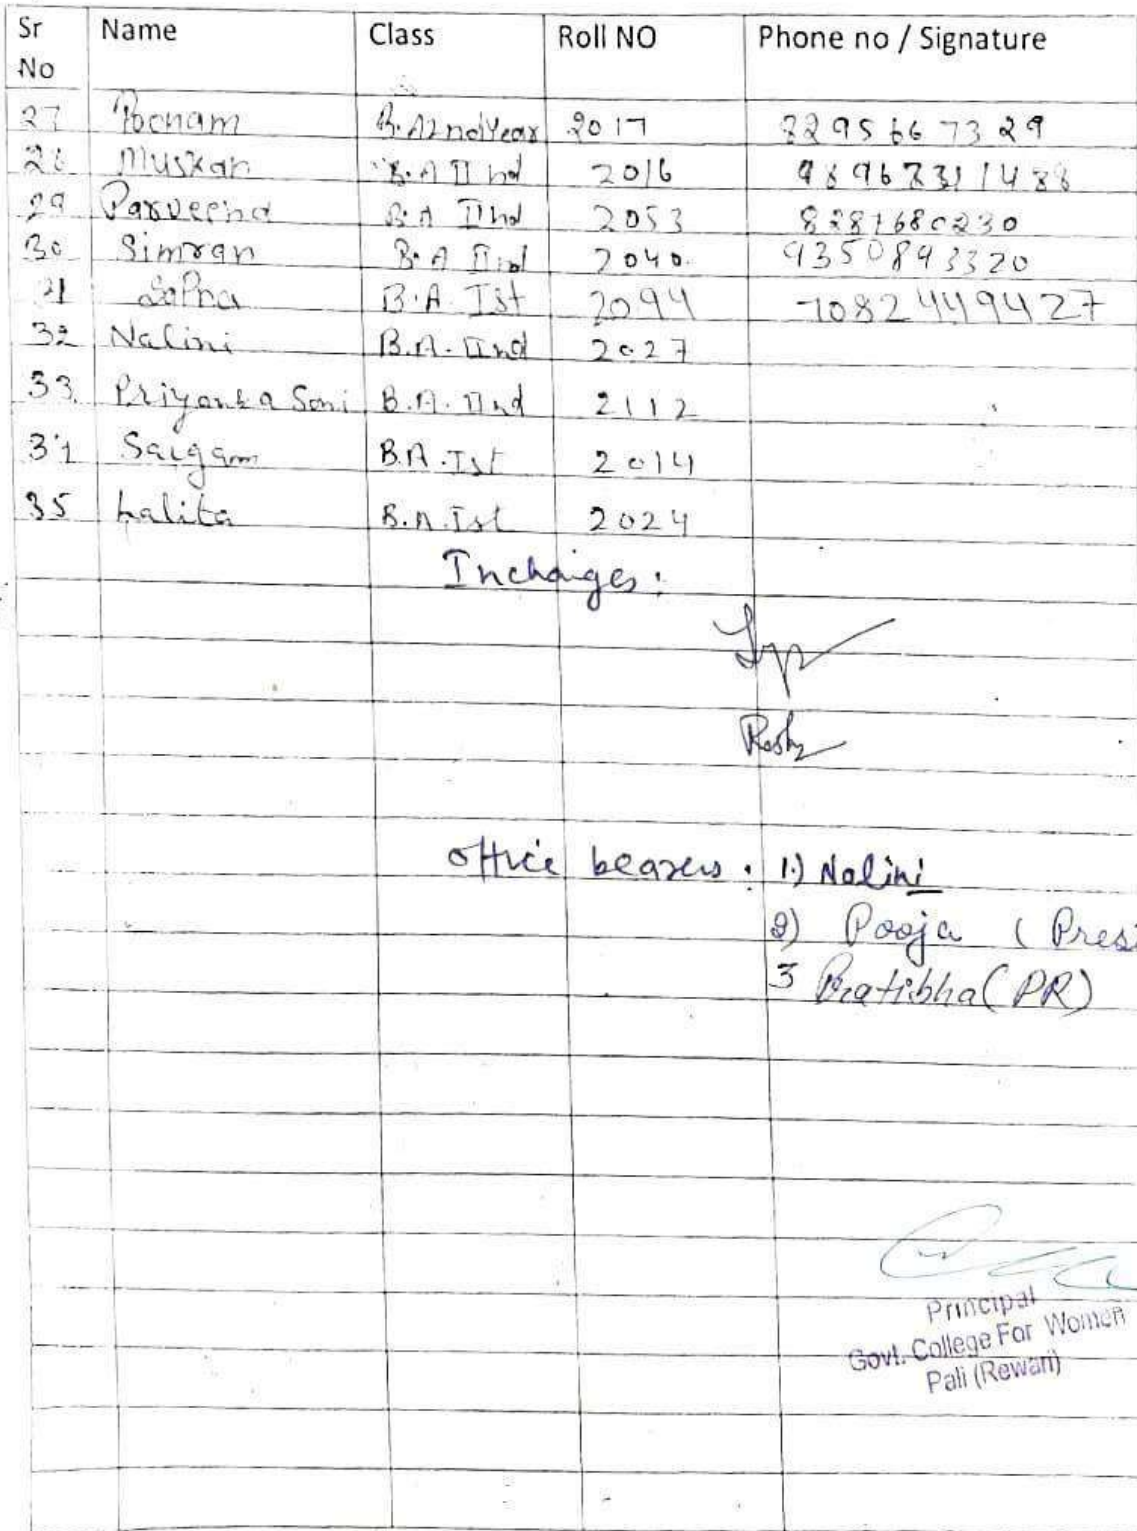 Sr No Name Class Roll NO Phone no / Signature
27 Poonam B.A 2nd Year 2017 8295667329
28 Muskan B.A IInd 2016
29 Parveena B.A IInd 2053
30 Simran B.A IInd 2040. 9350893320
31 Sapna B.A. Ist 2094 7082449427
32 Nalini B.A. IInd 2027
33. Priyanka Soni B.A. IInd 2112
34 Sargam B.A. Ist 2014
35 Lalita B.A. Ist 2024
Incharges:
office bearers: 1.) Nalini
2) Pooja (Presi
3 Pratibha (PR)
Principal
Govt. College For Women
Pali (Rewari)